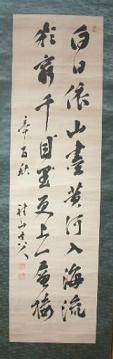 白日依山盡黄河入海流
欲窮千目里更上一層樓
辛酉秋